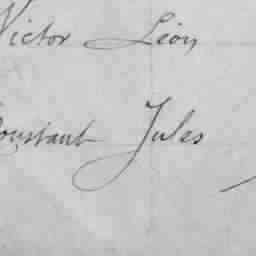 Victor Léon
Constant Jules